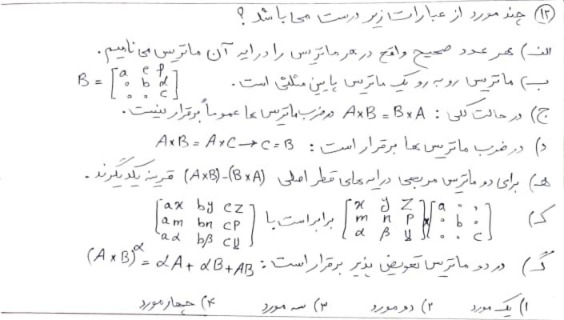 ۱۲) چند مورد از عبارات زیر درست می باشد ؟
الف) هر عدد صحیح واقع در هر ماتریس را درایه آن ماتریس می نامیم.
ب) ماتریس روبه رو یک ماتریس پایین مثلثی است. B = [a e f / ۰ b d / ۰ ۰ c]
ج) در حالت کلی : A×B = B×A در ضرب ماتریس ها عموماً برقرار نیست.
د) در ضرب ماتریس ها برقرار است : A×B = A×C → C = B
هـ) برای دو ماتریس مربعی درایه های قطر اصلی (A×B)-(B×A) قرینه یکدیگرند.
ک) [a ۰ ۰ / ۰ b ۰ / ۰ ۰ c] × [x y z / m n p / α β y] برابر است با [ax by cz / am bn cp / aα bβ cy]
گ) در دو ماتریس تعویض پذیر برقرار است : (A×B)^α = αA + αB + AB
۱) یک مورد ۲) دو مورد ۳) سه مورد ۴) چهار مورد